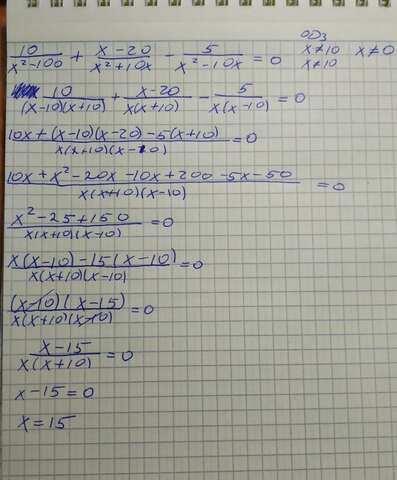 10/(x²-100) + (x-20)/(x²+10x) - 5/(x²-10x) = 0 ОДЗ x≠10 x≠0
x≠10
10/((x-10)(x+10)) + (x-20)/(x(x+10)) - 5/(x(x-10)) = 0
(10x+(x-10)(x-20)-5(x+10))/(x(x+10)(x-10)) = 0
(10x+x²-20x-10x+200-5x-50)/(x(x+10)(x-10)) = 0
(x²-25+150)/(x(x+10)(x-10)) = 0
(x(x-10)-15(x-10))/(x(x+10)(x-10)) = 0
((x-10)(x-15))/(x(x+10)(x-10)) = 0
(x-15)/(x(x+10)) = 0
x-15=0
x=15